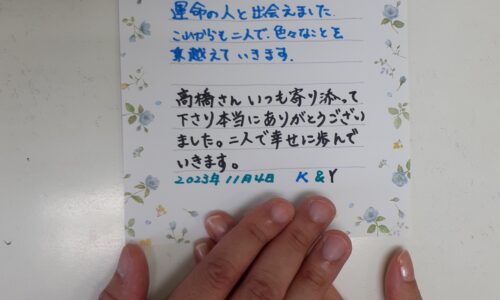 運命の人と出会えました
これからも二人で、色々なことを
乗越えていきます.
高橋さん いつも寄り添って
下さり本当にありがとうござい
ました。二人で幸せに歩んで
いきます。
2023年 11月4日 K & Y